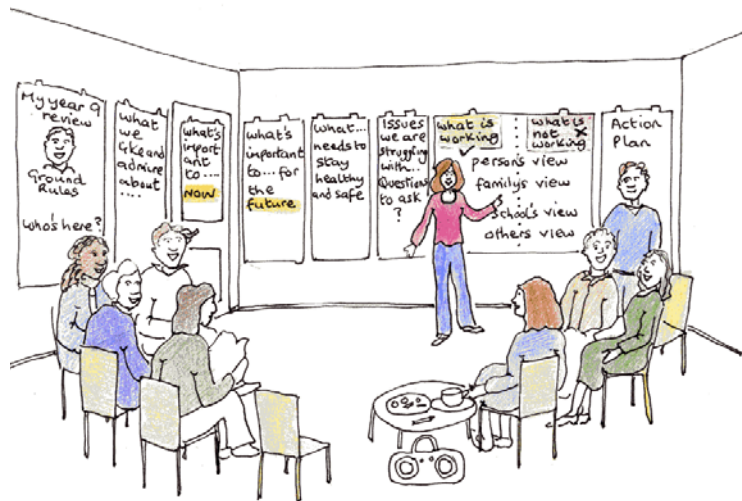 My year 9
review
Ground
Rules
Who's here?
What
we
like and
admire
about
....
what's
import
ant
to ....
NOW
what's
important
to... for
the
future
what...
needs to
stay
healthy
and safe
Issues
we are
struggling
with...
Questions
to ask
?
what is
working
what is
not
working
person's view
family's view
school's view
others view
Action
Plan